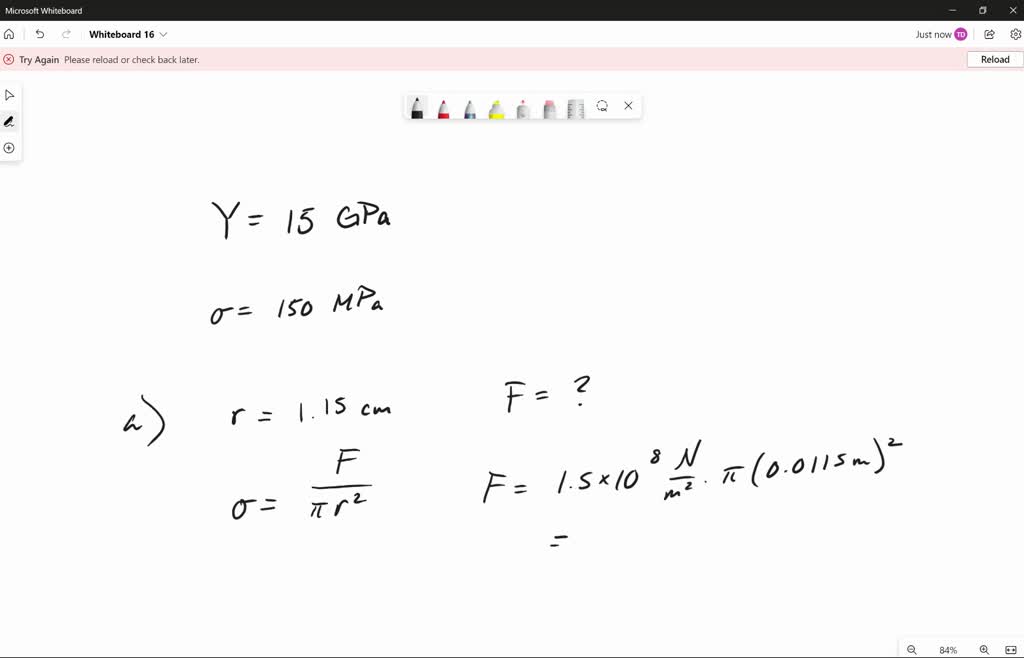 Microsoft Whiteboard
Whiteboard 16
Just now TD
Try Again Please reload or check back later.
Reload
Y = 15 GPa
σ = 150 MPa
a) r = 1.15 cm F = ?
σ = F / πr²
F = 1.5 × 10⁸ N/m² · π (0.0115 m)²
=
84%